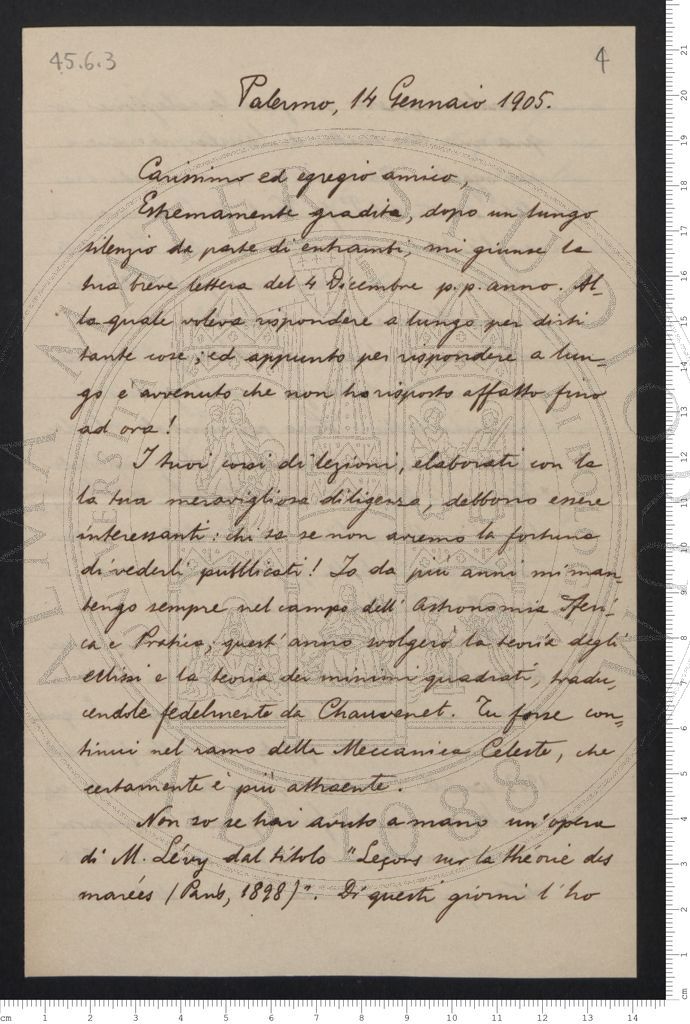 45.6.3
4
Palermo, 14 Gennaio 1905.
Carissimo ed egregio amico,
Estremamente gradita, dopo un lungo
silenzio da parte di entrambi, mi giunse la
tua breve lettera del 4 Dicembre p.p. anno. Al-
la quale voleva rispondere a lungo per dirti
tante cose; ed appunto per rispondere a lun-
go è avvenuto che non ho risposto affatto fino
ad ora!
I tuoi corsi di lezioni, elaborati con la
la tua meravigliosa diligenza, debbono essere
interessanti: chi sa se non avremo la fortuna
di vederli pubblicati! Io da più anni mi man-
tengo sempre nel campo dell'Astronomia Sferi-
ca e Pratica; quest'anno svolgerò la teoria degli
eclissi e la teoria dei minimi quadrati, tradu-
cendole fedelmente da Chauvenet. Tu forse con-
tinui nel ramo della Meccanica Celeste, che
certamente è più attraente.
Non so se hai avuto a mano un'opera
di M. Lévy dal titolo "Leçons sur la théorie des
marées (Paris, 1898)". Di questi giorni l'ho